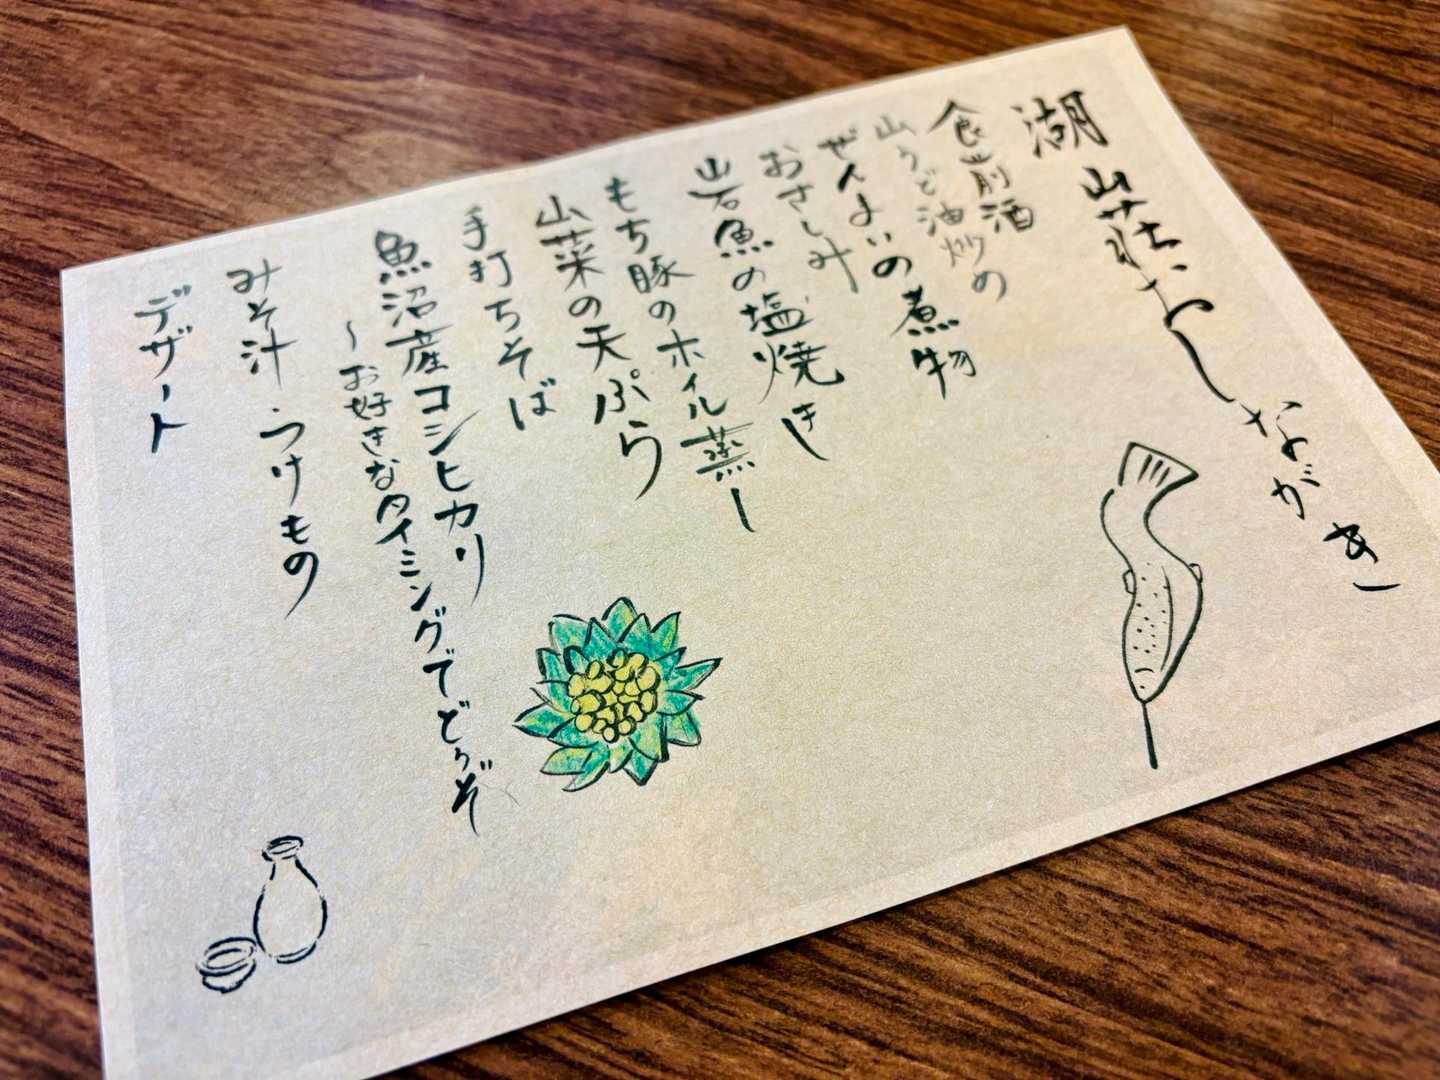 湖山荘おしながき
食前酒
山うど油炒め
ぜんまいの煮物
おさしみ
岩魚の塩焼き
もち豚のホイル蒸し
山菜の天ぷら
手打ちそば
魚沼産コシヒカリ
～お好きなタイミングでどうぞ
みそ汁・つけもの
デザート